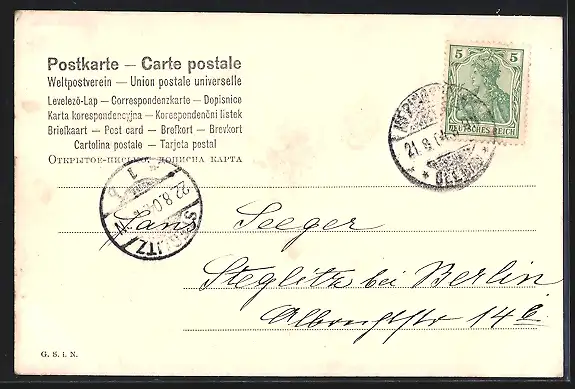 Postkarte — Carte postale
Weltpostverein — Union postale universelle
Levelező-Lap — Correspondenzkarte — Dopisnice
Karta korespondencyjna — Korespondenční lístek
Briefkaart — Post card — Brefkort — Brevkort
Cartolina postale — Tarjeta postal
Открытое-письмо, дописна карта
5 5
DEUTSCHES REICH
21 8 04
22.8.04
STEGLITZ
Hans Seeger
Steglitz bei Berlin
Albrechtstr 14 b.
G. S. i. N.